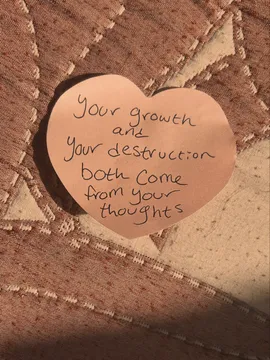 Your growth
and
Your destruction
both Come
from your
thoughts